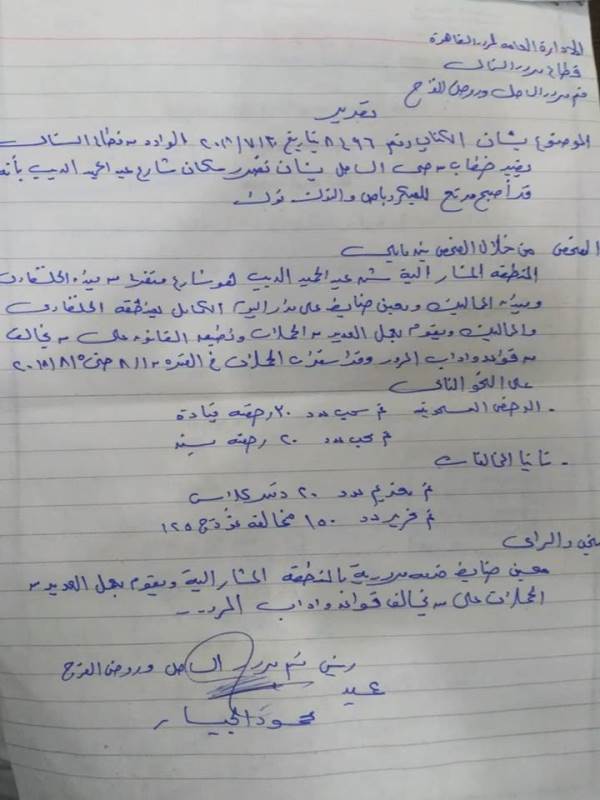 الإدارة العامة لمرور القاهرة
قطاع مرور الشمالى
قسم مرور الساحل وروض الفرج
تقرير
الموضوع بشأن الكتاب رقم ٨٤٩٦ بتاريخ ٢٠١٨/٧/٣٠ الوارد من قطاع الشمالى
يفيد خطاب من حى الساحل بشأن تضرر سكان شارع عبد الحميد الديب بأنه
قد أصبح مرتع للميكروباص والتوك توك
الفحص من خلال الفحص تبين مايلى
المنطقه المشار اليه شارع عبد الحميد الديب هو شارع متفرع من ميدان الخلفاوى
وميدان ومعين ضابط على مدار اليوم الكامل بمنطقه الخلفاوى
ويقوم بعمل العديد من الحملات وتطبيق القانون على من يخالف
من قواعد واداب المرور وقد اسفرت الحملات فى الفتره من ٨/١ حتى ٢٠١٨/٨/٥
على النحو التالى
- الرخص المسحوبه تم سحب عدد ٣٠ رخصة قيادة
تم سحب عدد ٢٠ رخصه تسيير
- ثانيا المخالفات
تم عدد ٢٠
تم تحرير عدد ١٥٠ مخالفه نموذج ١٢٥
والراى
معين ضابط خدمه مرورية بالمنطقه المشار الية ويقوم بعمل العديد من
الحملات على من يخالف قواعد واداب المرور...
رئيس قسم مرور الساحل وروض الفرج
عميد
محمود